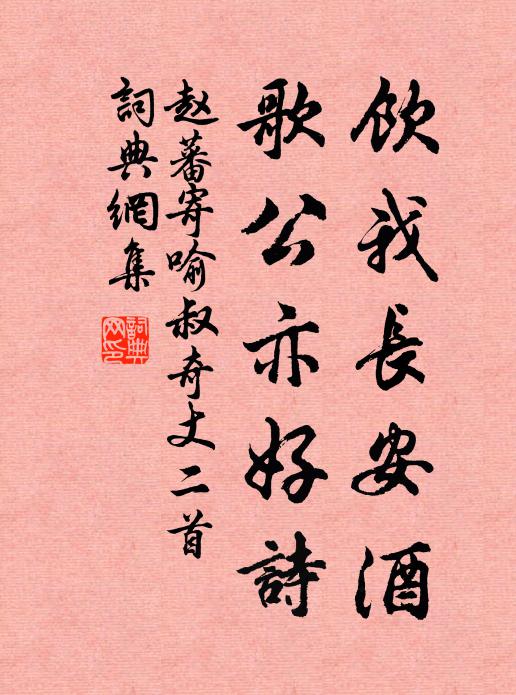 飲我長安酒
歌公亦好詩
赵蕃寄喻叔奇丈二首
詞典網集
詞典网印